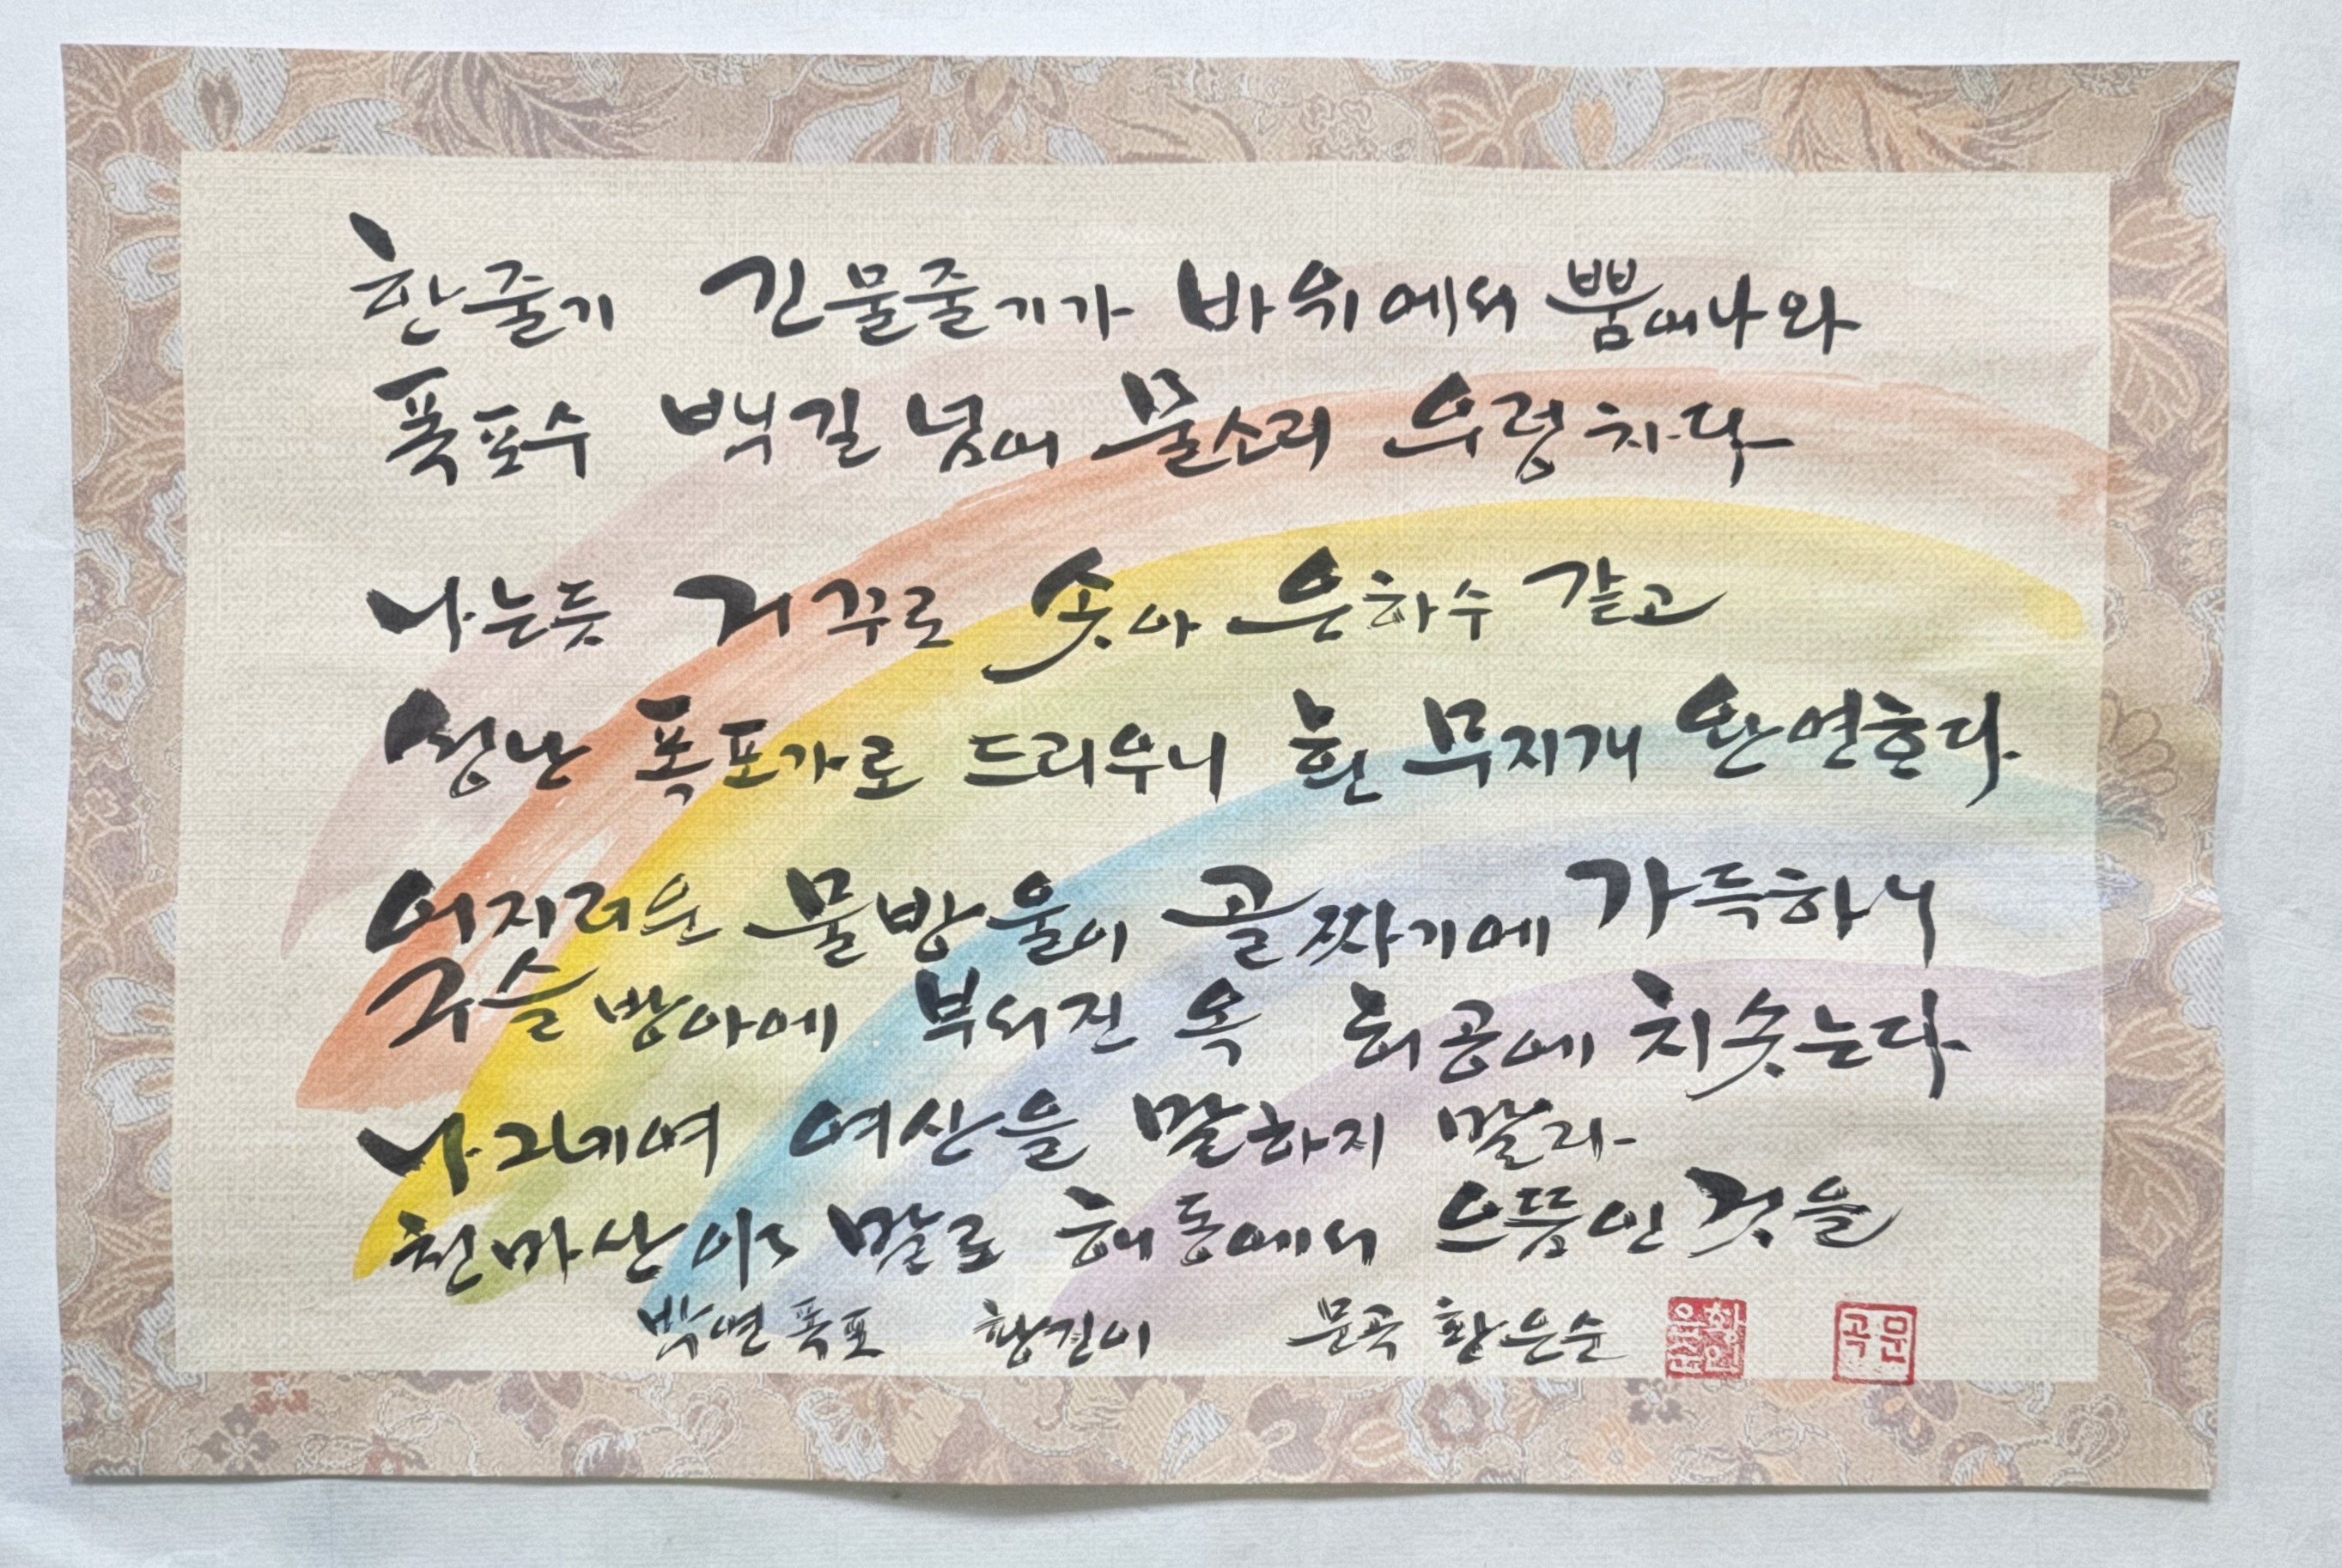 한줄기 긴물줄기가 바위에서 뿜어나와
폭포수 백길 넘어 물소리 우렁차다
나는듯 거꾸로 솟아 은하수 같고
성난 폭포가로 드리우니 흰 무지개 완연하다
어지러운 물방울이 골짜기에 가득하니
구슬 방아에 부서진 옥 허공에 치솟는다
나그네여 여산을 말하지 말라
천마산이야 말로 해동에서 으뜸인 것을
박연폭포 황진이 문곡 황은순
황은순인
문곡